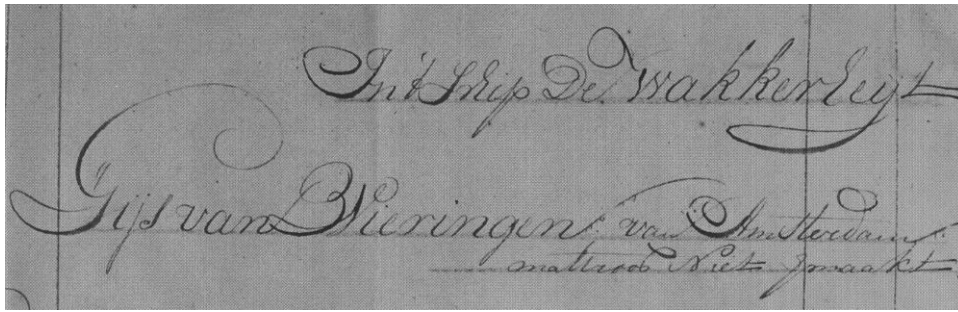 In't Schip De Wakkerheyt
Gijs van Wieringen van Amsterdam
mattroos Niet gemaakt